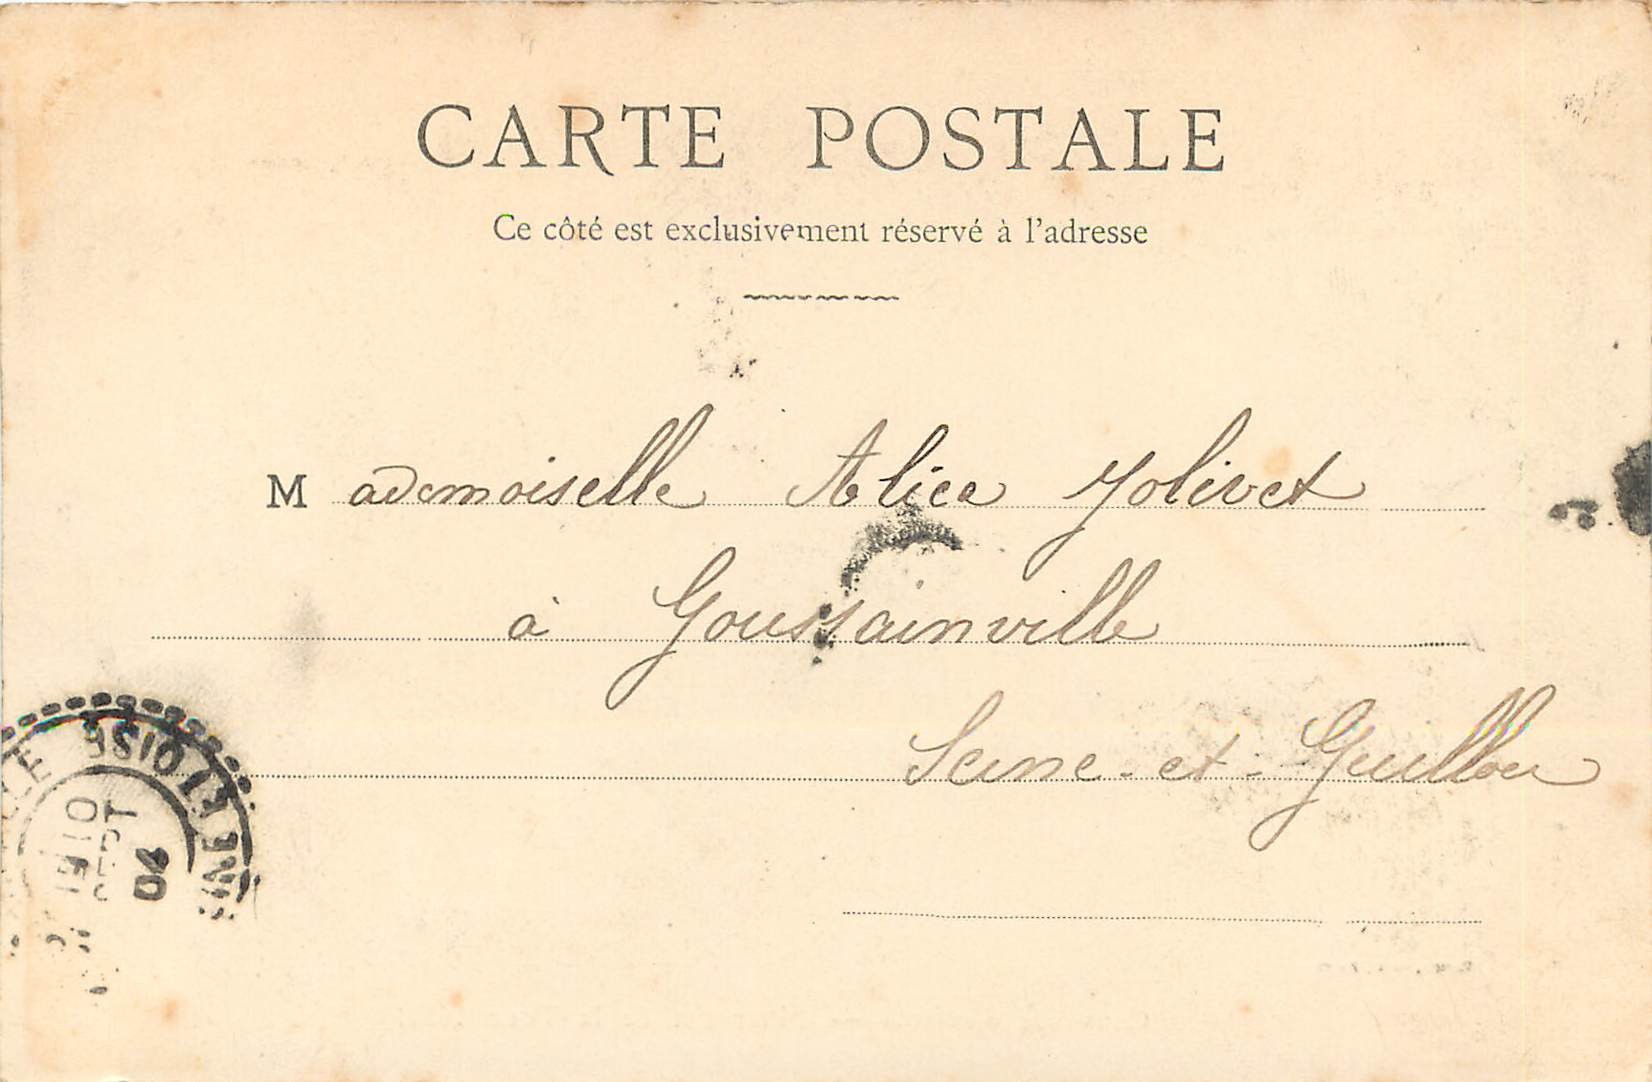 CARTE POSTALE
Ce côté est exclusivement réservé à l'adresse
Mademoiselle Alice Jolivet
à Goussainville
Seine-et-
OISE
SEPT
04